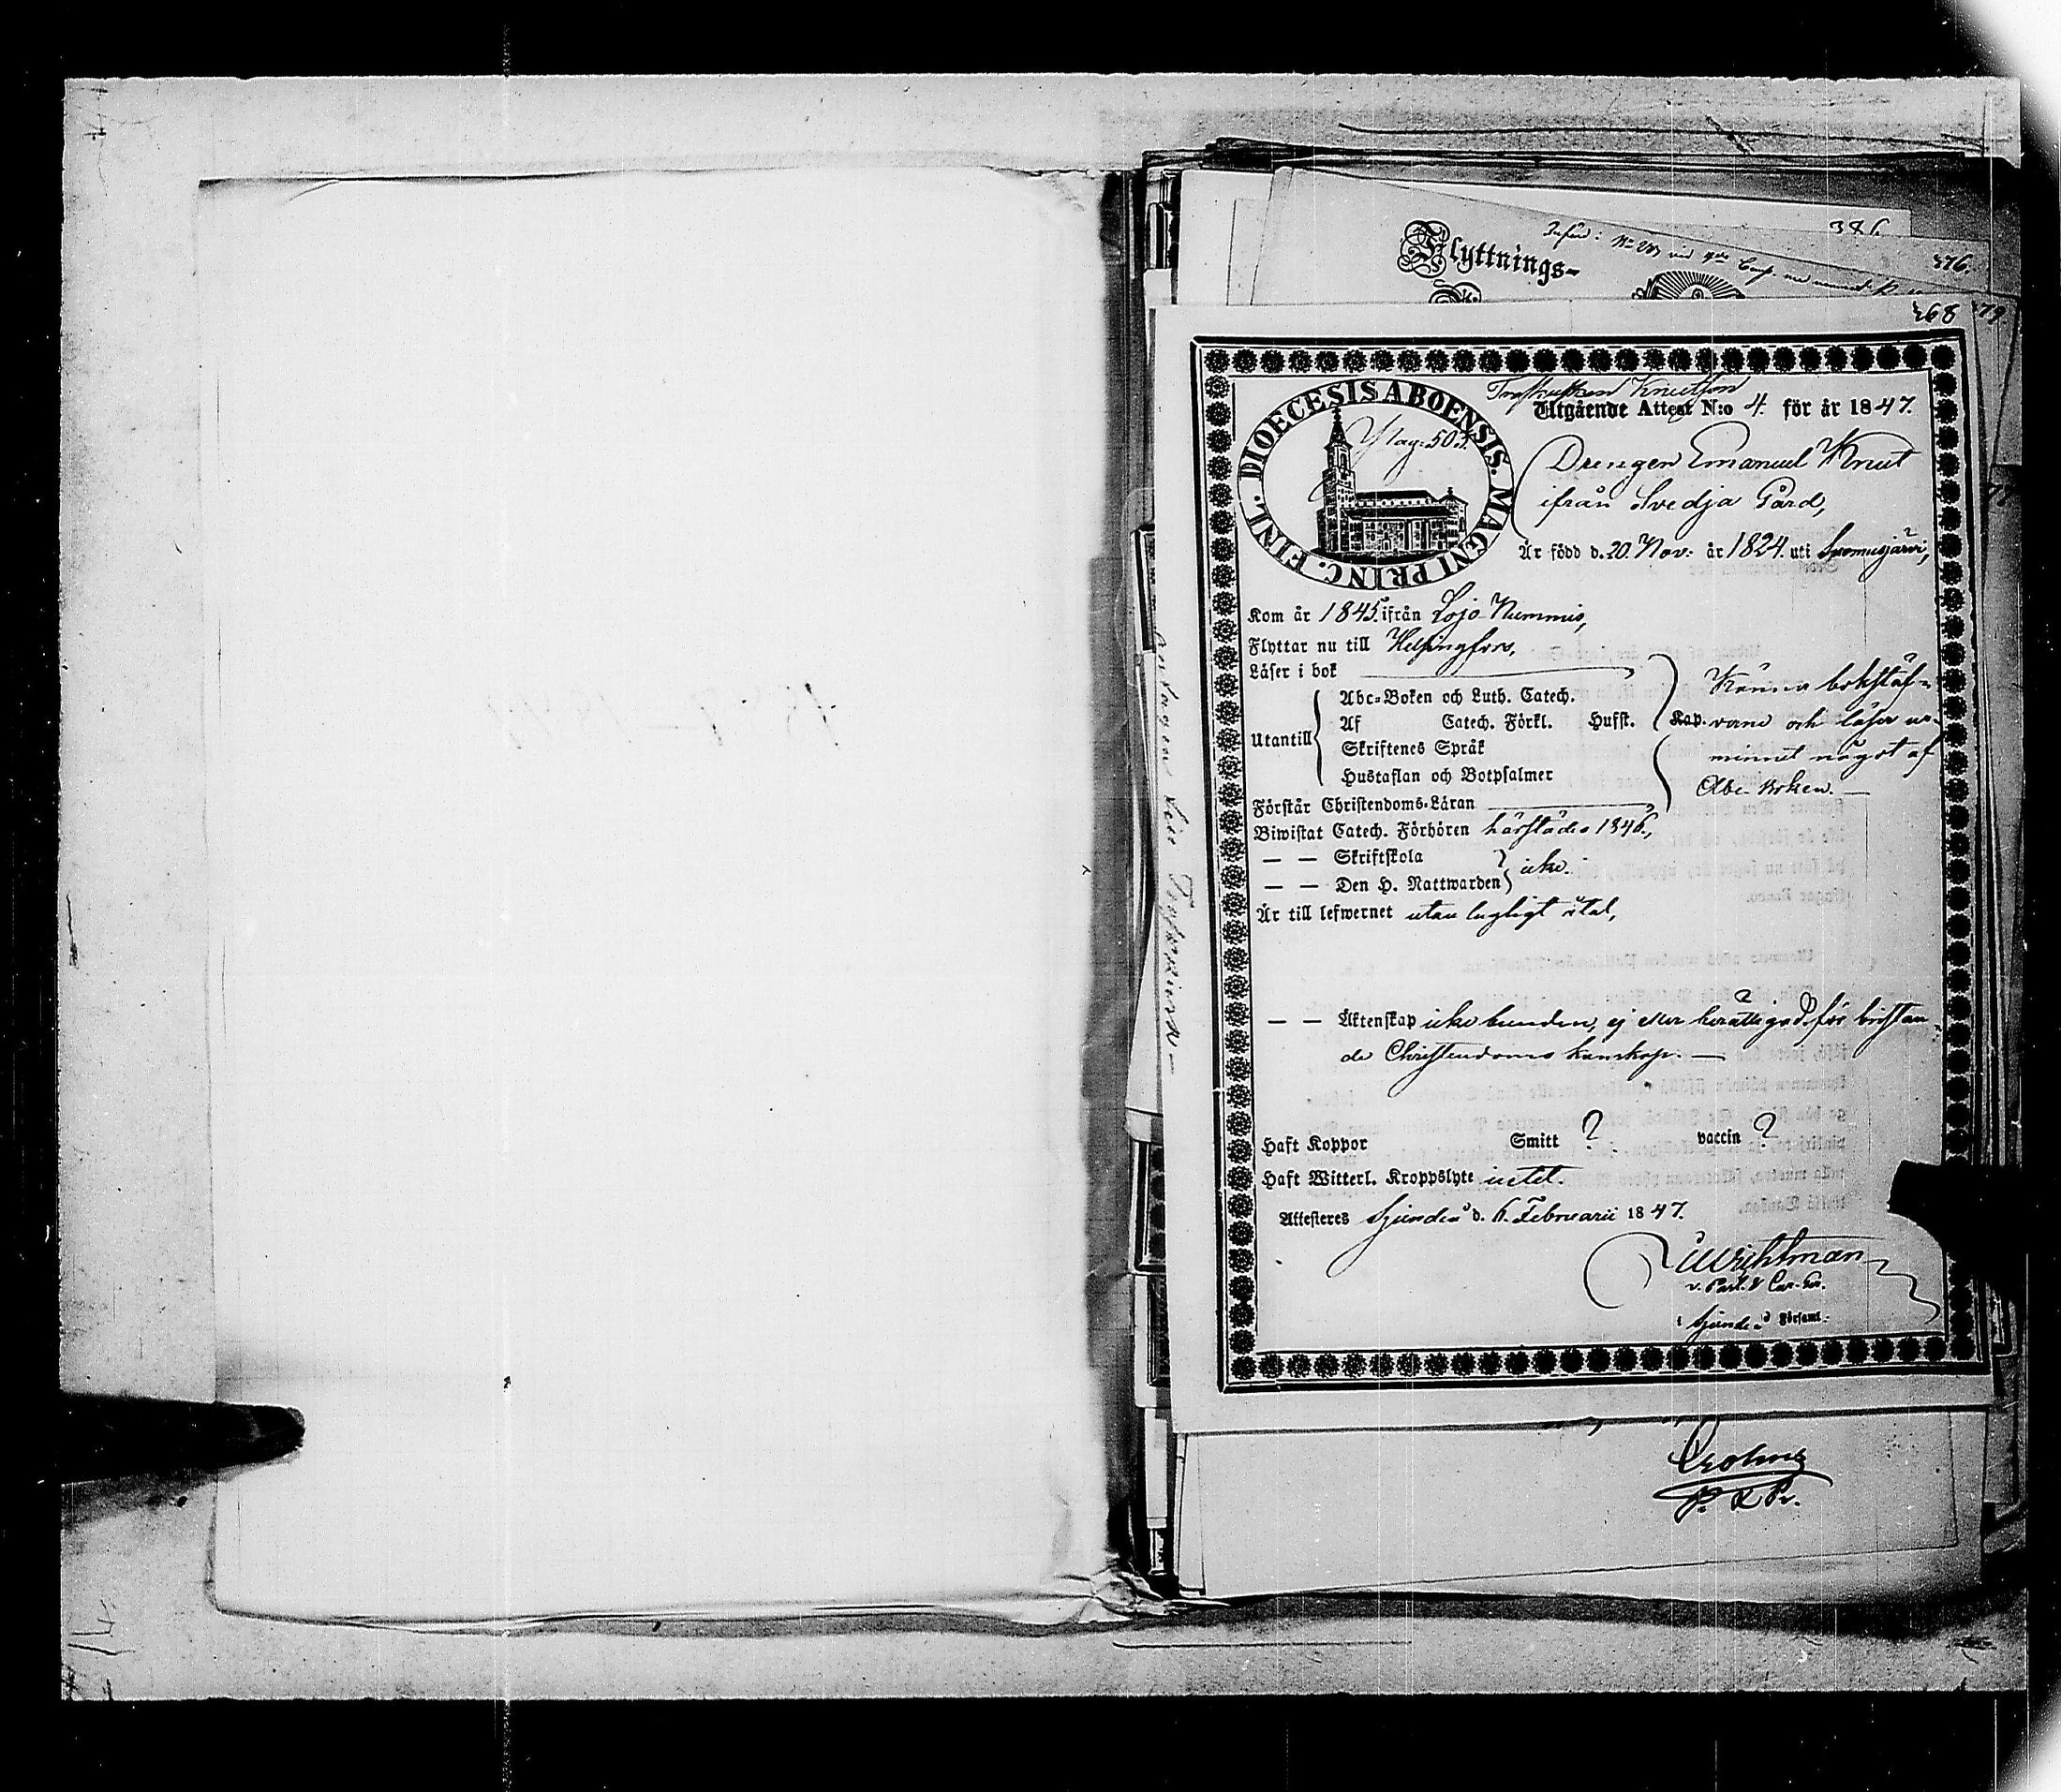 386.
Flyttnings-
376.
368
379.
Knutson
Utgående Attest N:o 4. för år 1847.
DIOECESIS ABOENSIS. MAGNI PRINC. FINL.
pag: 503.
Drengen Emanuel Knut
ifrån Svedja Gård,
Är född d. 20. Nov: år 1824. uti Suomusjärvi,
Kom år 1845. ifrån Lojo Nummis,
Flyttar nu till Helsingfors,
Läser i bok
Utantill
Abc-Boken och Luth. Catech.
Af Catech. Förkl. Husst. Kap.
Skriftenes Språk
Hustaflan och Botpsalmer
Känner bokstäf-
verne och läser ur
minnet något af
Abc boken. —
Förstår Christendoms-Läran
Biwistat Catech. Förhören härstädes 1846.,
— — Skriftskola
— — Den H. Nattwarden icke.
Är till lefwernet utan lagligt åtal,
— — Äktenskap icke bunden, ej eller berättigad för bristan-
de Christendoms kunskap. —
Haft Koppor Smitt ? vaccin ?
Haft Witterl. Kroppslyte intet.
Attesteres Sjundeå d. 6. Februarii 1847.
Wichtman
i Sjundeå Församl.